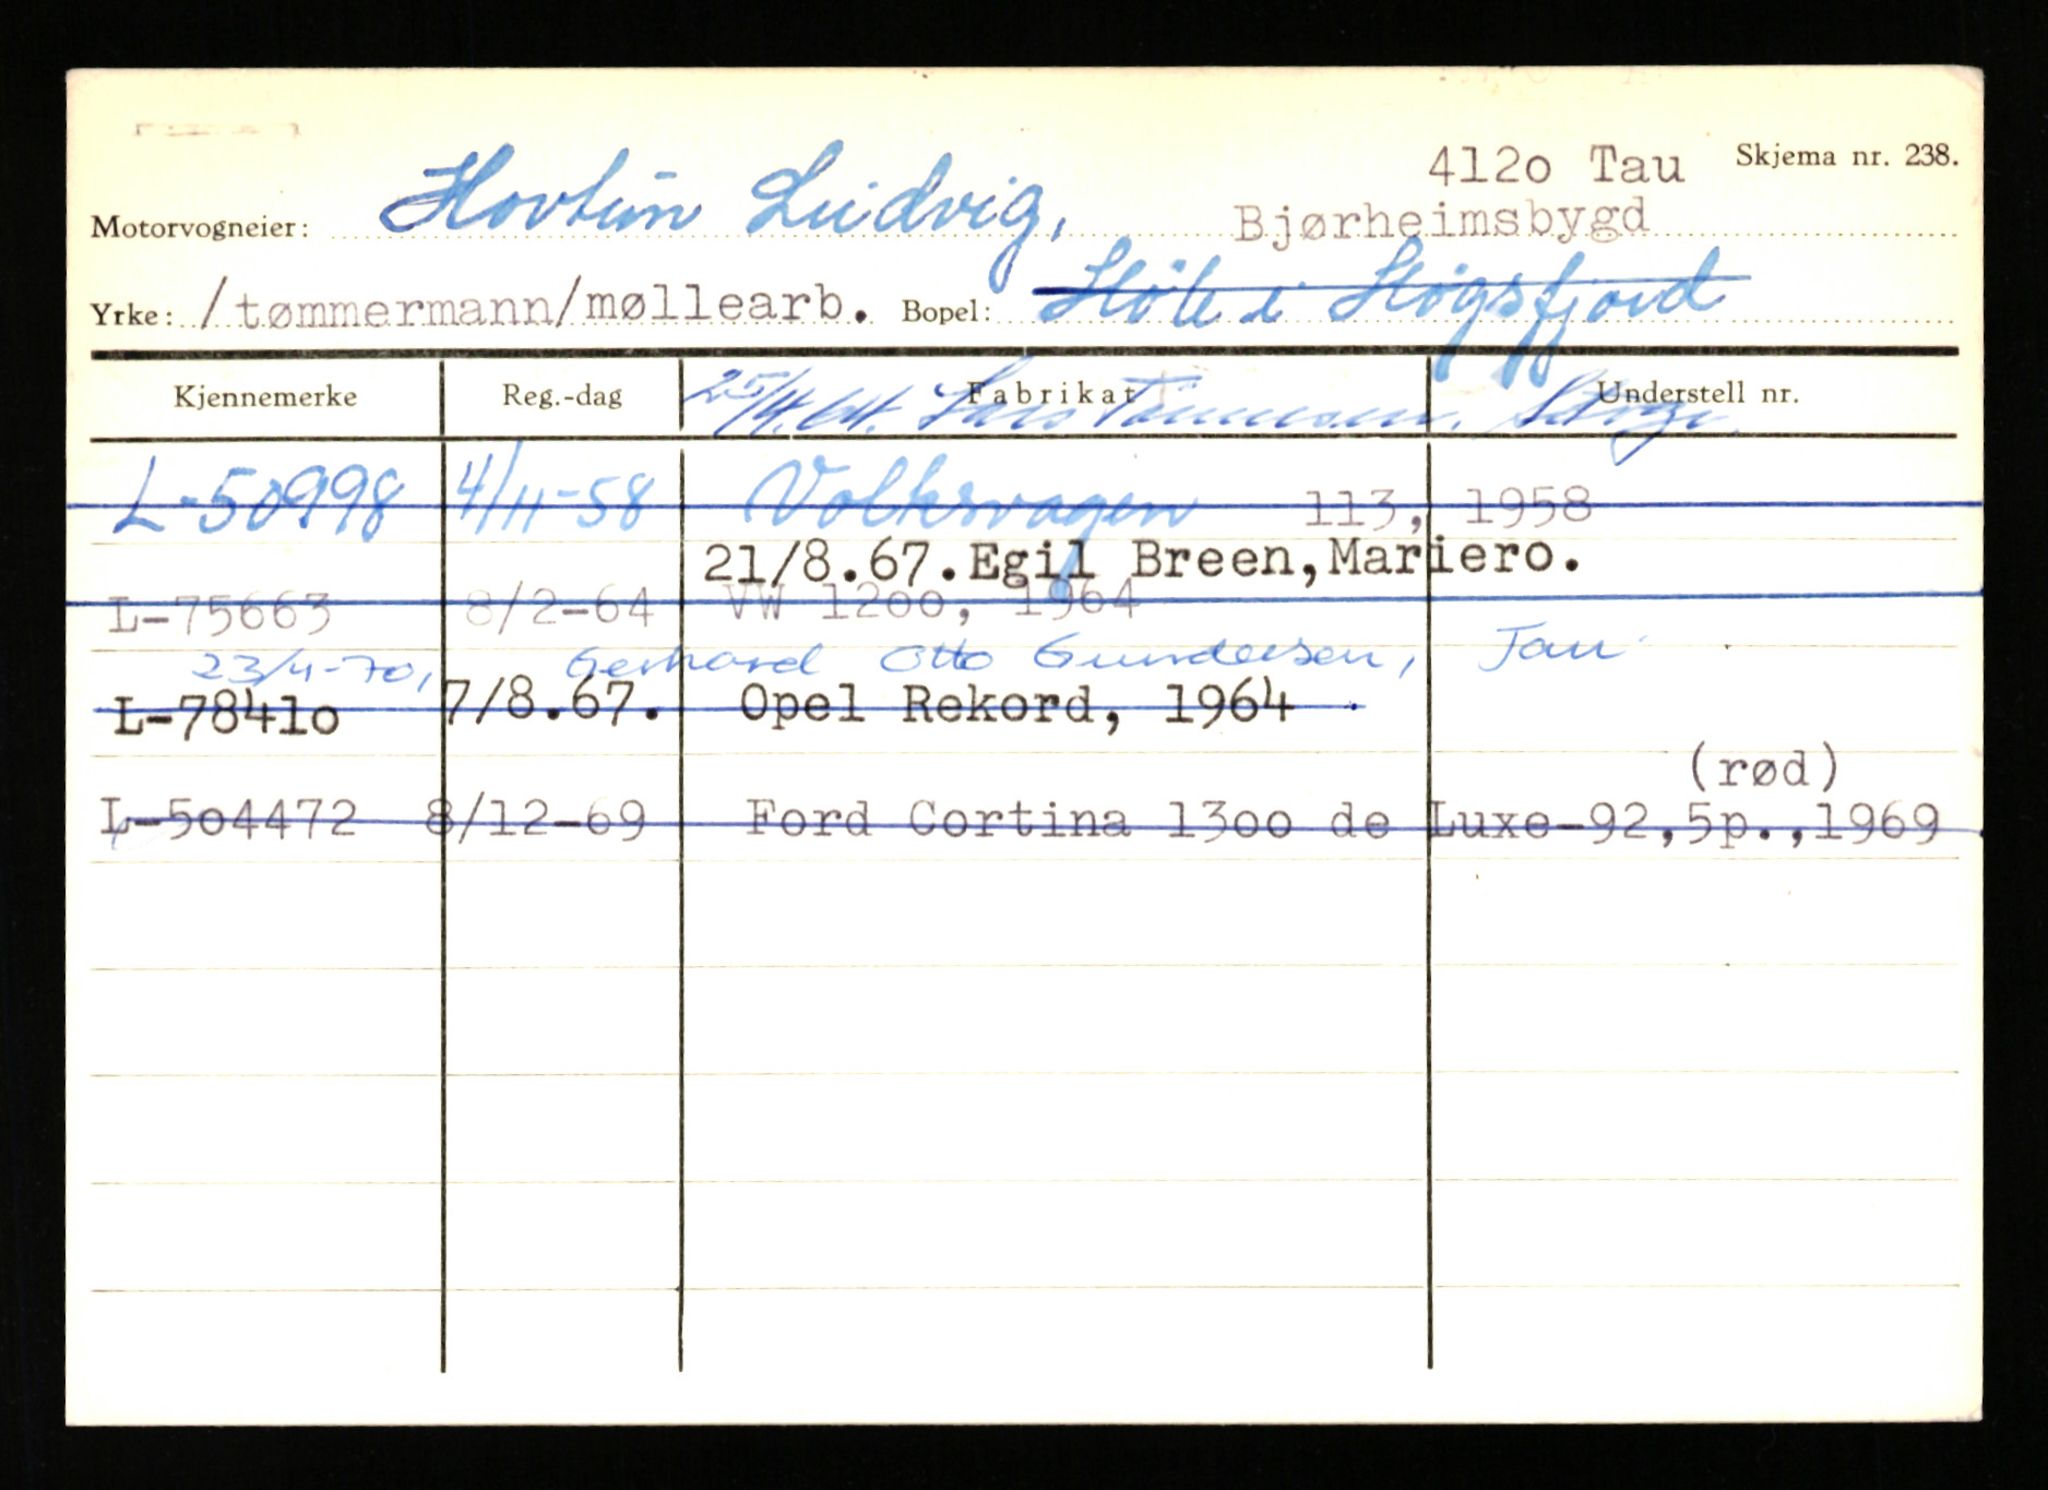 4120 Tau Skjema nr. 238.
Motorvogneier: Hovtun Ludvig, Bjørheimsbygd
Yrke: /tømmermann/møllearb. Bopel: Høle i Høgsfjord
Kjennemerke Reg.-dag Fabrikat Understell nr.
25/4.64. Lars
L-50998 4/11-58 Volksvagen 113, 1958
21/8.67.Egil Breen,Mariero.
L-75663 8/2-64 VW 1200, 1964
23/4-70, Gerhard Otto Gundersen, Tau
L-78410 7/8.67. Opel Rekord, 1964
(rød)
L-504472 8/12-69 Ford Cortina 1300 de Luxe-92,5p.,1969